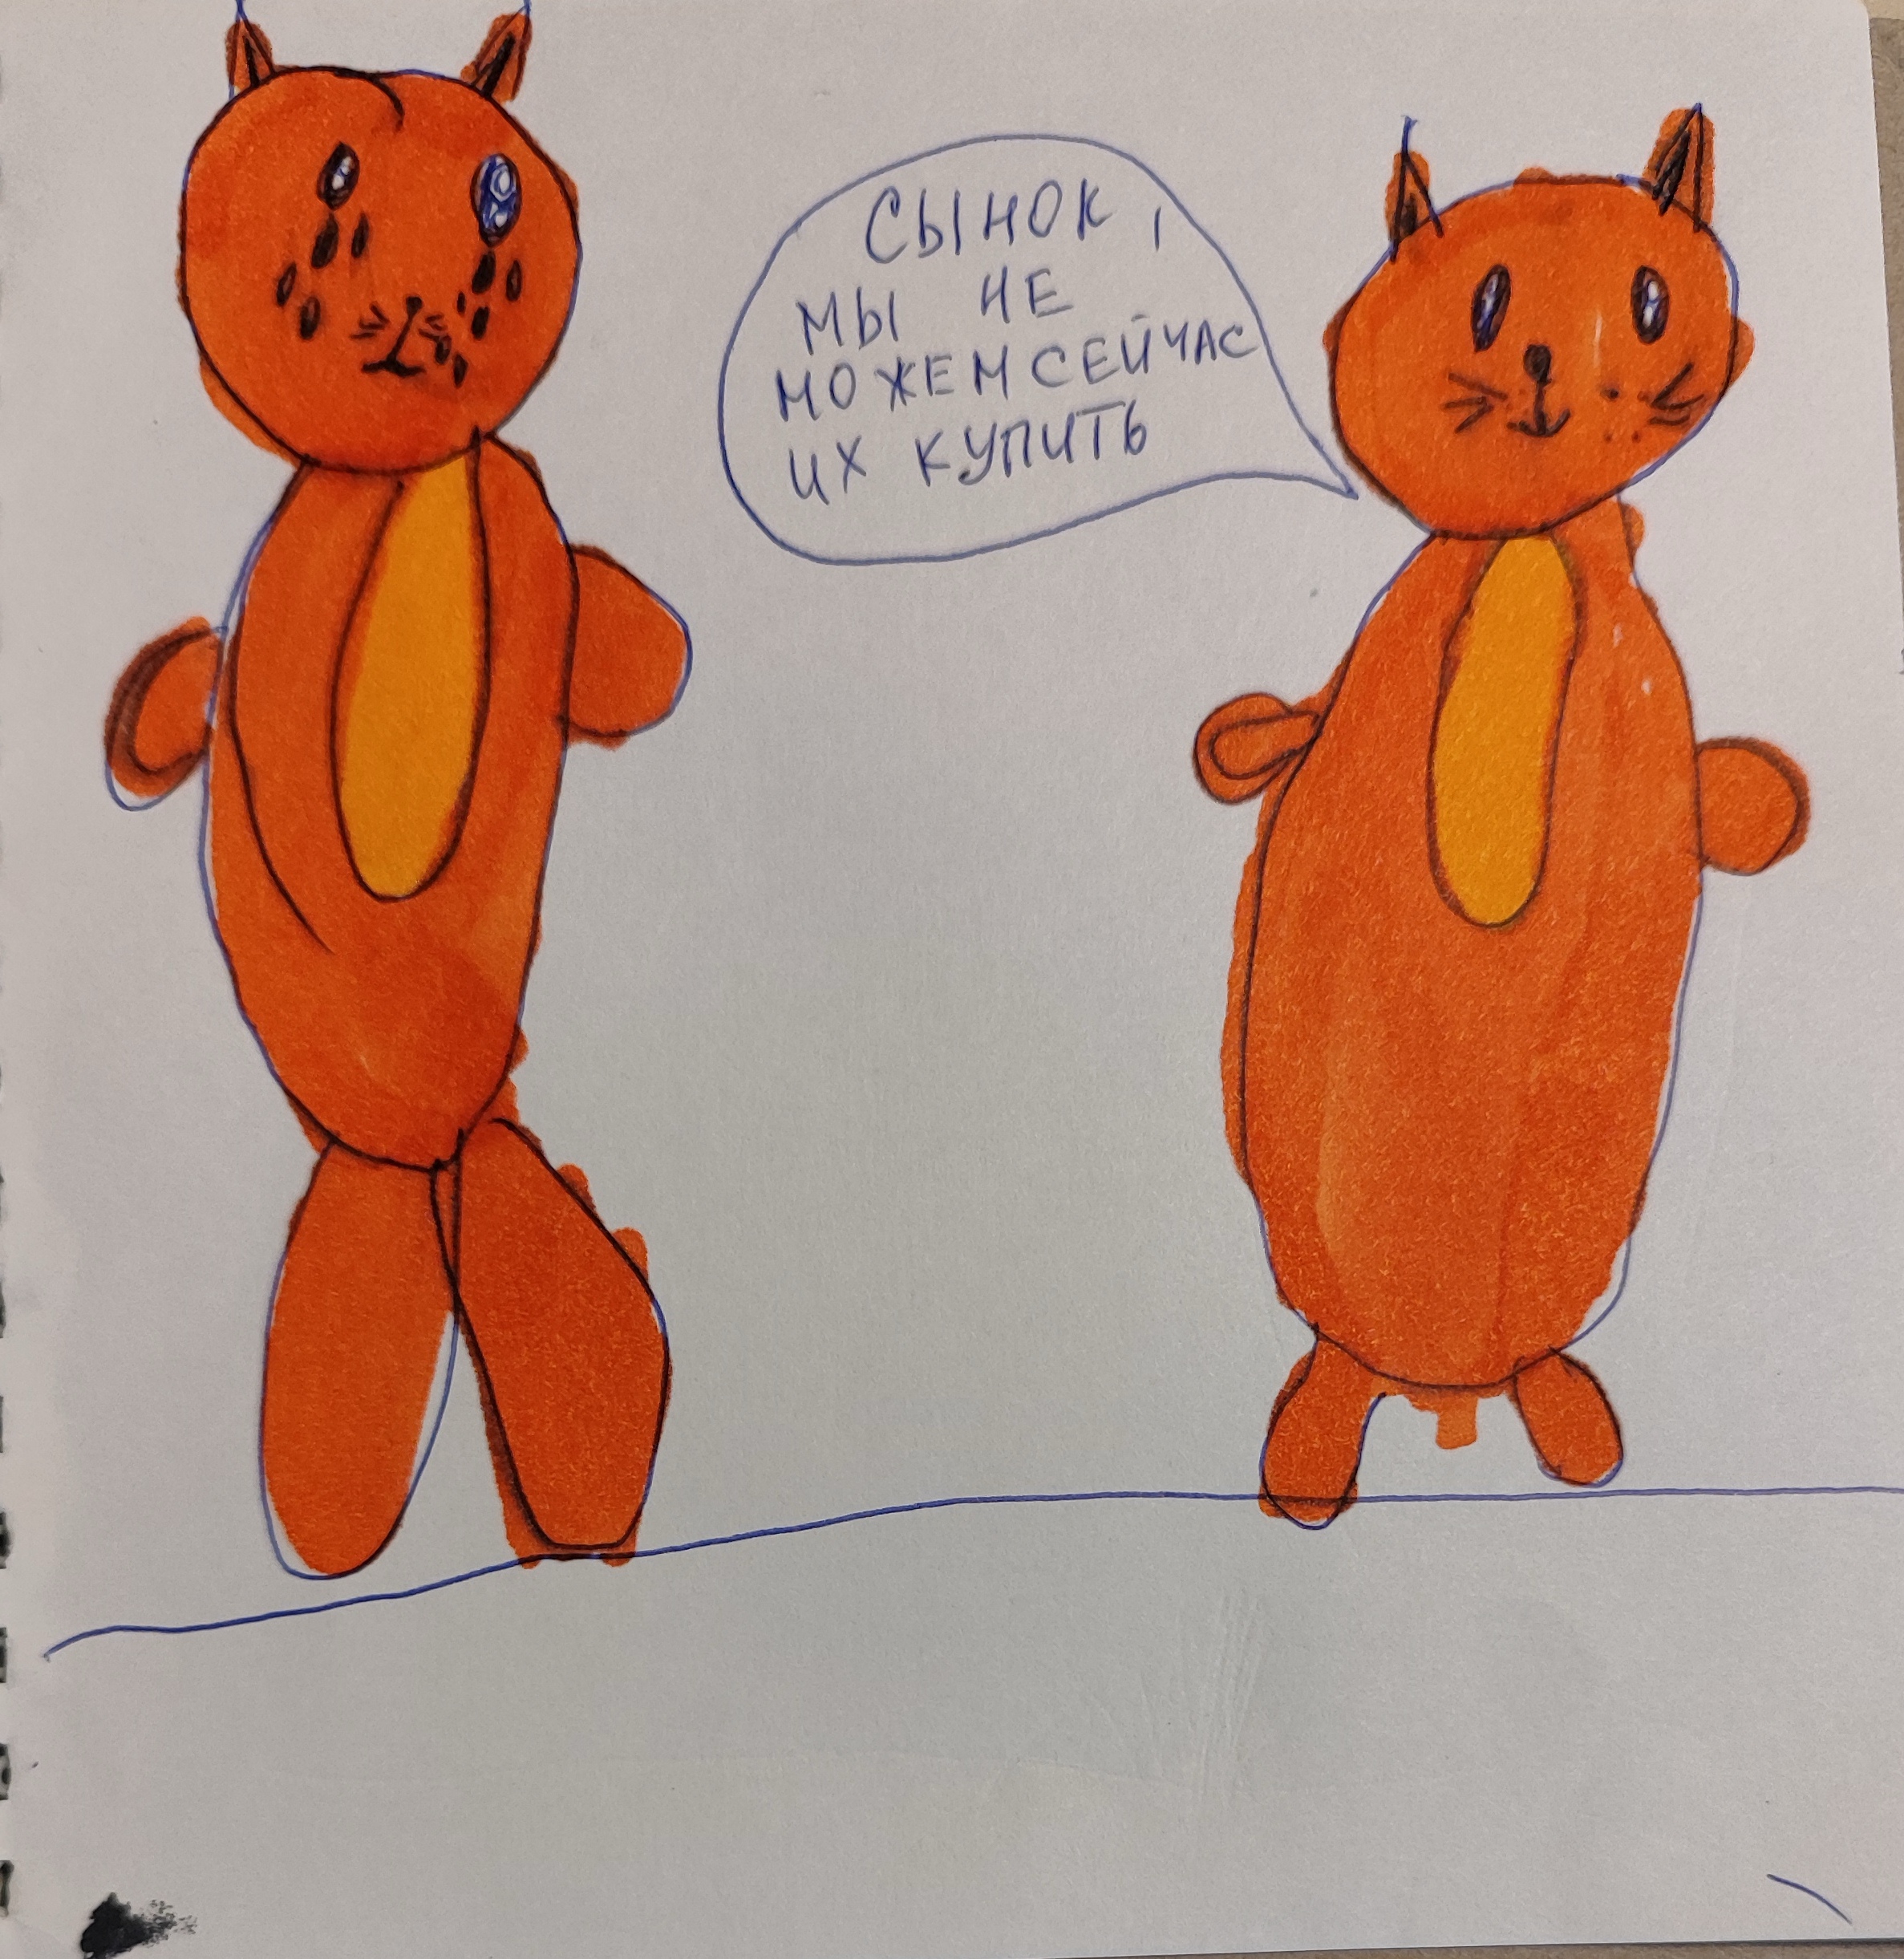 СЫНОК,
МЫ НЕ
МОЖЕМ СЕЙЧАС
ИХ КУПИТЬ